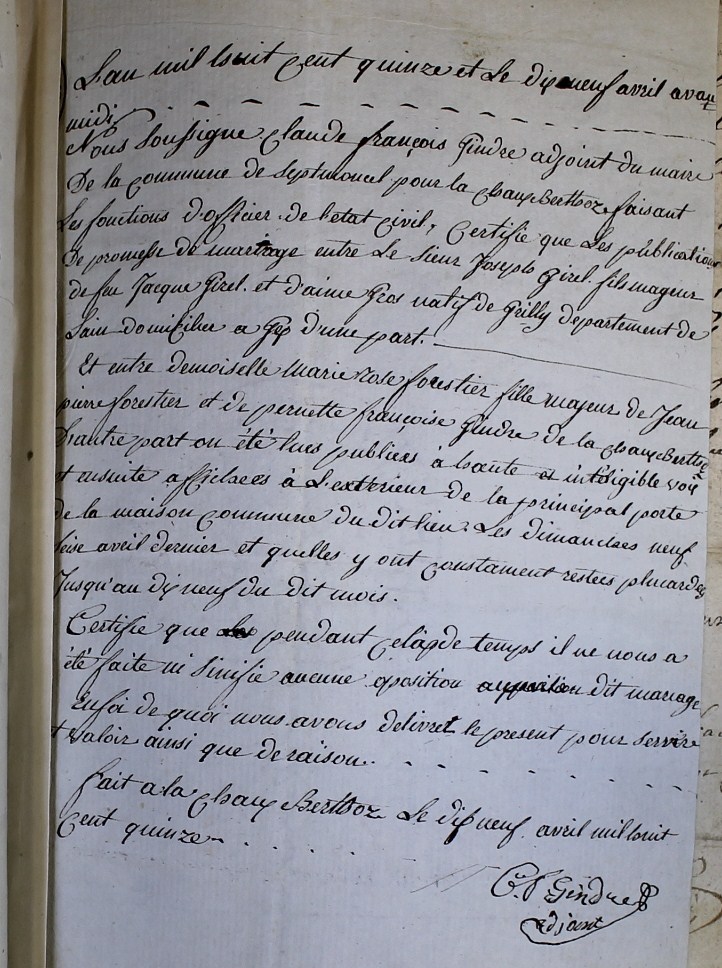 L'an mil huit cent quinze et Le dix neuf avril avant
midi
Nous Soussigne Claude françois Gindre adjoint du maire
De la commune de Septmoncel pour la chaux Berthoz faisant
Les fonctions d'officier de l'etat civil, Certifie que Les publications
De promesse de mariage entre Le Sieur Joseph Girel fils mageur
de feu Jacque Girel et d'aime Gros natif de Grilly departement de
Lain domicilier a Gex D'une part.
Et entre demoiselle Marie rose forestier fille majeur de Jean
pierre forestier et de pernette françoise Gindre de la chaux Berthoz
D'autre part on été lues publiees à haute et inteligible voix
et ensuite affichees à L'exterieur de la principal porte
de la maison commune du dit lieu Les dimanches neuf
seise avril dernier et quelles y ont constament restees placardes
Jusqu'au dix neuf du dit mois.
Certifie que pendant celapde temps il ne nous a
été faite ni sinifie aucune oposition dit mariage
Enfoi de quoi nous avons delivret le present pour servire
et valoir ainsi que de raison.
fait a la chaux Berthoz Le dix neuf avril mil huit
cent quinze
C. f Gindre
adjoint